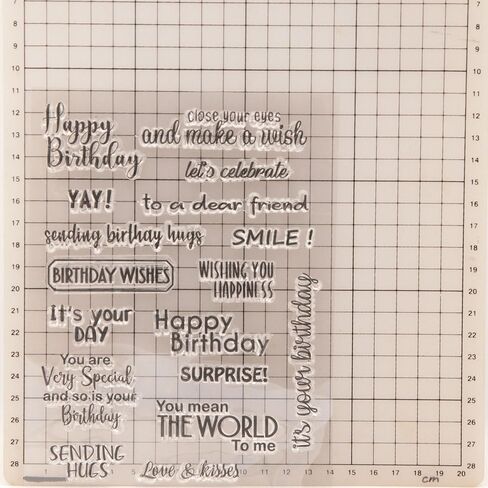 7 7
8 8
9 9
10 10
11 11
12 12
13 13
14 14
15 15
16 16
17 17
18 18
19 19
20 20
21 21
22 22
23 23
24 24
25 25
26 26
27 27
28 28
Happy
Birthday
close your eyes
and make a wish
let's celebrate
YAY!
to a dear friend
sending birthday hugs
SMILE !
BIRTHDAY WISHES
WISHING YOU
HAPPINESS
It's your
DAY
Happy
Birthday
it's your birthday
You are
Very Special
and so is your
Birthday
SURPRISE!
You mean
THE WORLD
To me
SENDING
HUGS
Love & kisses
5 6 7 8 9 10 11 12 13 14 15 16 17 18 19 20
cm